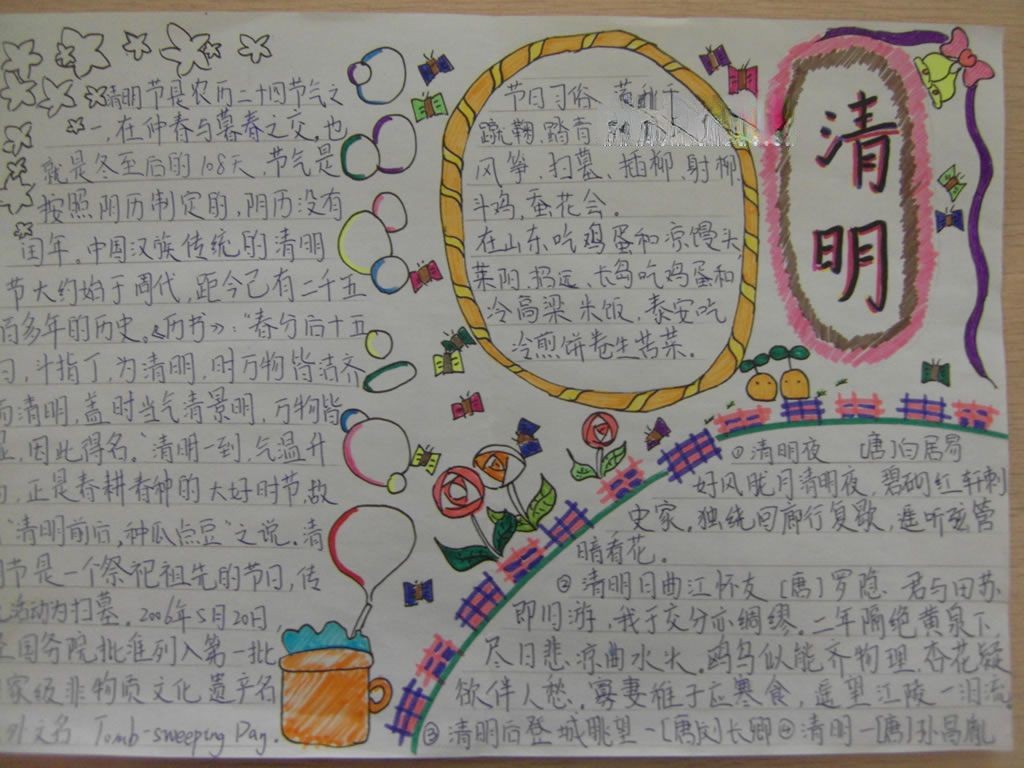 清明
清明节是农历二十四节气之
一,在仲春与暮春之交,也
就是冬至后的108天,节气是
按照阴历制定的,阴历没有
闰年。中国汉族传统的清明
节大约始于周代,距今已有二千五
百多年的历史。《历书》:“春分后十五
日,斗指丁,为清明,时万物皆洁齐
而清明,盖时当气清景明,万物皆
显,因此得名。”清明一到,气温升
高,正是春耕春种的大好时节,故
“清明前后,种瓜点豆”之说。清
明节是一个祭祀祖先的节日,传
活动为扫墓。2006年5月20日
国务院批准列入第一批
家级非物质文化遗产名
外文名 Tomb-sweeping Day.
节日习俗
蹴鞠.踏青
风筝.扫墓.插柳.射柳
斗鸡,蚕花会。
在山东,吃鸡蛋和凉馒头
莱阳.招远.长岛吃鸡蛋和
冷高梁米饭,泰安吃
冷煎饼卷生苦菜。
①清明夜 (唐)白居易
好风胧月清明夜,碧砌红轩刺
史家。独绕回廊行复歇,遥听弦管
暗看花。
②清明日曲江怀友 [唐]罗隐.君与田苏
即旧游,我于交分亦绸缪。二年隔绝黄泉下,
尽日悲凉曲水头。鸥鸟似能齐物理,杏花疑
欲伴人愁。寡妻稚子应寒食,遥望江陵一泪流
③清明后登城眺望-[唐]刘长卿④清明-[唐]孙昌胤